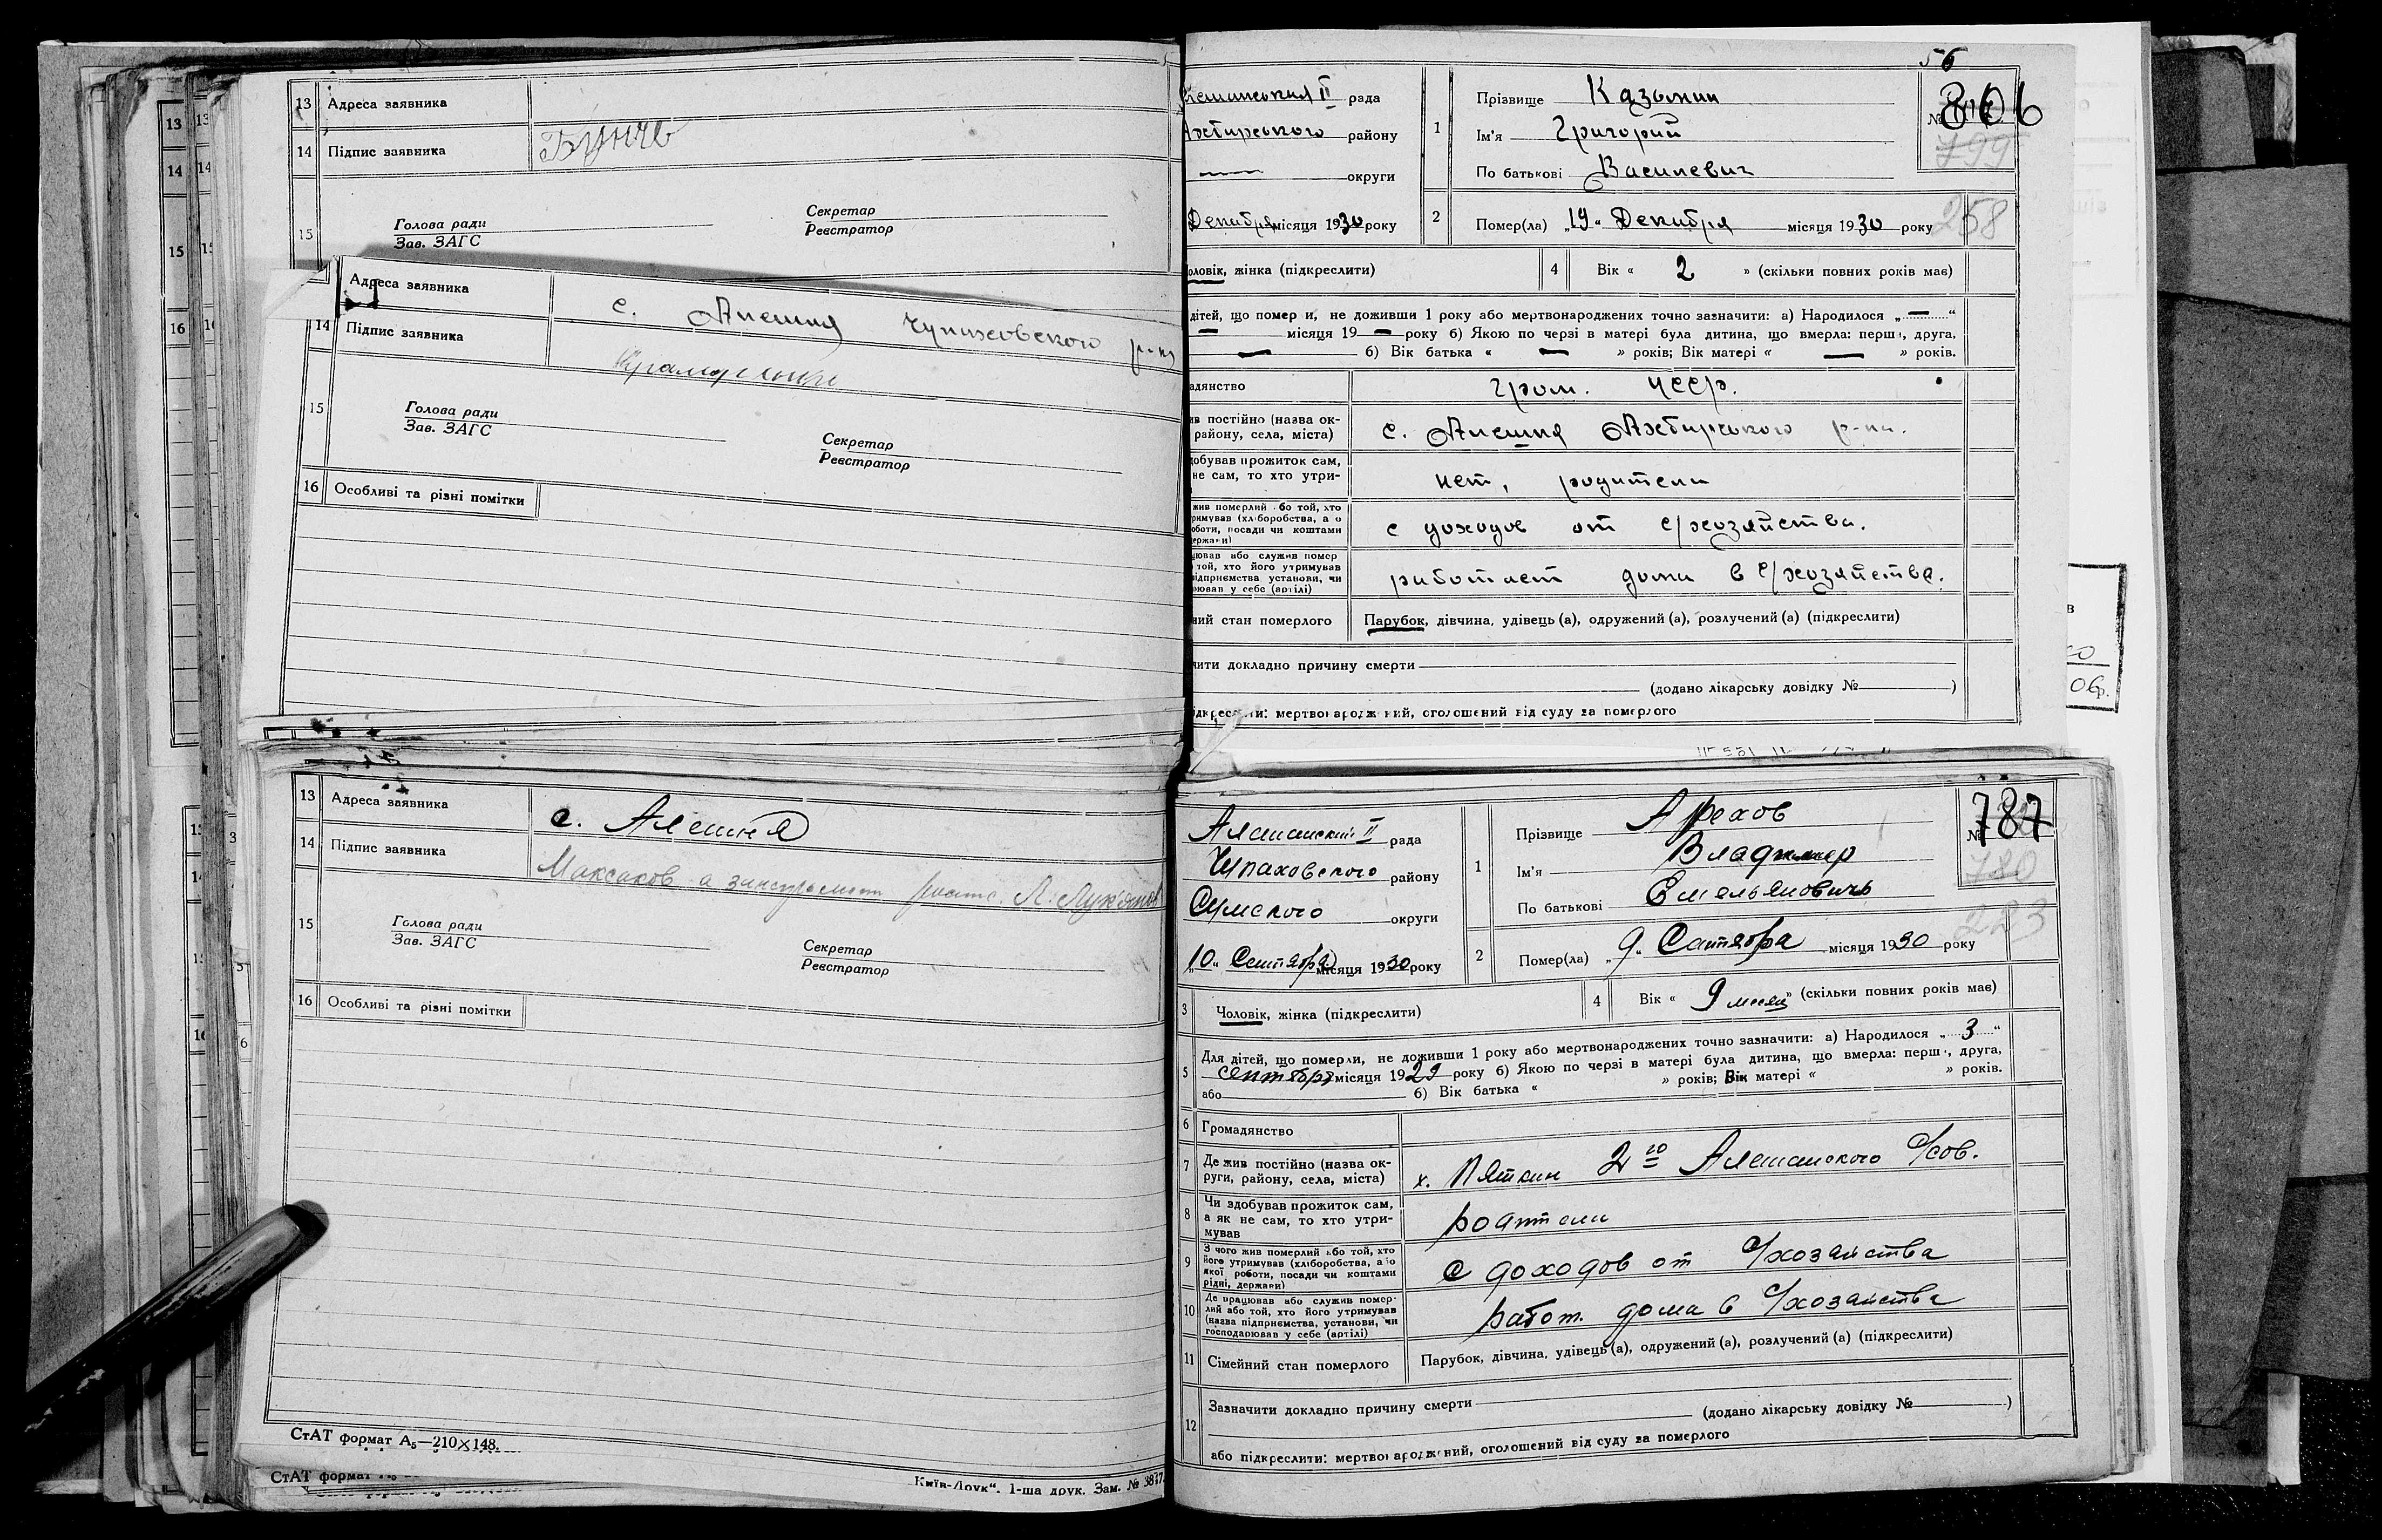 13 Адреса заявника
14 Підпис заявника
15 Голова ради Секретар
Зав. ЗАГС Реєстратор
Адреса заявника с. Алешня Чупаховского р-на
14 Підпис заявника
15 Голова ради
Зав. ЗАГС Секретар
Реєстратор
16 Особливі та різні помітки
13 Адреса заявника с. Алешня
14 Підпис заявника Максаков а
15 Голова ради Секретар
Зав. ЗАГС Реєстратор
16 Особливі та різні помітки
СтАТ формат А₅—210×148.
СтАТ формат
Київ-Друк“. 1-ша друк. Зам. № 3877
56
рада
району
округи
Декабря місяця 1930 року
1 Прізвище Казьмин
Ім'я Григорий
По батькові Василевич
№ 806
799
2 Помер(ла) „19“ Декабря місяця 1930 року
258
чоловік, жінка (підкреслити) 4 Вік « 2 » (скільки повних років має)
дітей, що померли, не доживши 1 року або мертвонароджених точно зазначити: а) Народилося „ — “
— місяця 19 — року б) Якою по черзі в матері була дитина, що вмерла: перша, друга,
— б) Вік батька « — » років; Вік матері « — » років.
адянство гром. УССР.
ив постійно (назва ок-
району, села, міста) с. Алешня Ахтирського р-на.
добував прожиток сам,
не сам, то хто утри- нет, родители
жив померлий або той, хто
римував (хліборобства, а о
оботи, посади чи коштами
держави) с доходов от с/хозяйства.
цював або служив помер
той, хто його утримував
підприємства установи, чи
рював у себе (артілі) работает дома в с/хозяйстве.
ний стан померлого Парубок, дівчина, удівець (а), одружений (а), розлучений (а) (підкреслити)
чити докладно причину смерти
(додано лікарську довідку № )
ідкреслити: мертвонароджений, оголошений від суду за померлого
Алешанский II рада
Чупаховского району
Сумского округи
„10“ Сентября місяця 1930 року
1 Прізвище Арехов
Ім'я Владимир
По батькові Емельяновичь
№ 787
780
2 Помер(ла) „9“ Сентября місяця 1930 року
3 Чоловік, жінка (підкреслити) 4 Вік « 9 месяц » (скільки повних років має)
5 Для дітей, що померли, не доживши 1 року або мертвонароджених точно зазначити: а) Народилося „ 3 “
сентября місяця 1929 року б) Якою по черзі в матері була дитина, що вмерла: перша, друга,
або б) Вік батька « » років; Вік матері « » років.
6 Громадянство
7 Де жив постійно (назва ок-
руги, району, села, міста) х. Пяткин 2го Алешанского С/сов.
8 Чи здобував прожиток сам,
а як не сам, то хто утри-
мував
9 З чого жив померлий або той, хто
його утримував (хліборобства, або
якої роботи, посади чи коштами
рідні, держави) с доходов от С/хозайства
10 Де працював або служив помер-
лий або той, хто його утримував
(назва підприємства, установи, чи
господарював у себе (артілі) работ. дома в С/хозайства
11 Сімейний стан померлого Парубок, дівчина, удівець (а), одружений (а), розлучений (а) (підкреслити)
12 Зазначити докладно причину смерти
(додано лікарську довідку № )
або підкреслити: мертвонароджений, оголошений від суду за померлого